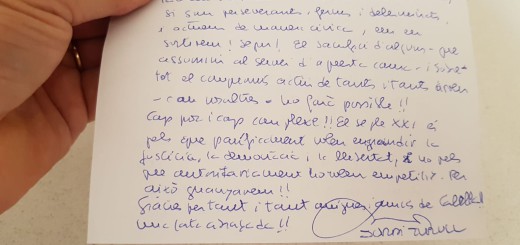 si som perseverants, ferms i determinats,
i actuem de manera cívica, ens en
sortirem! Segur! El sacrifici d'alguns que
assumim al servei d'aquesta causa - i sobre-
tot el compromís actiu de tants i tantes
- com vosaltres - ho farà possible!!
Cap por i cap complexe!! El segle XXI és
pels que pacíficament volen engrandir la
justícia, la democràcia i la llibertat, i no pels
que autoritàriament ho volen empetitir. Per
això guanyarem!!
Gràcies per tant i tant amigues i amics de
una forta abraçada!!